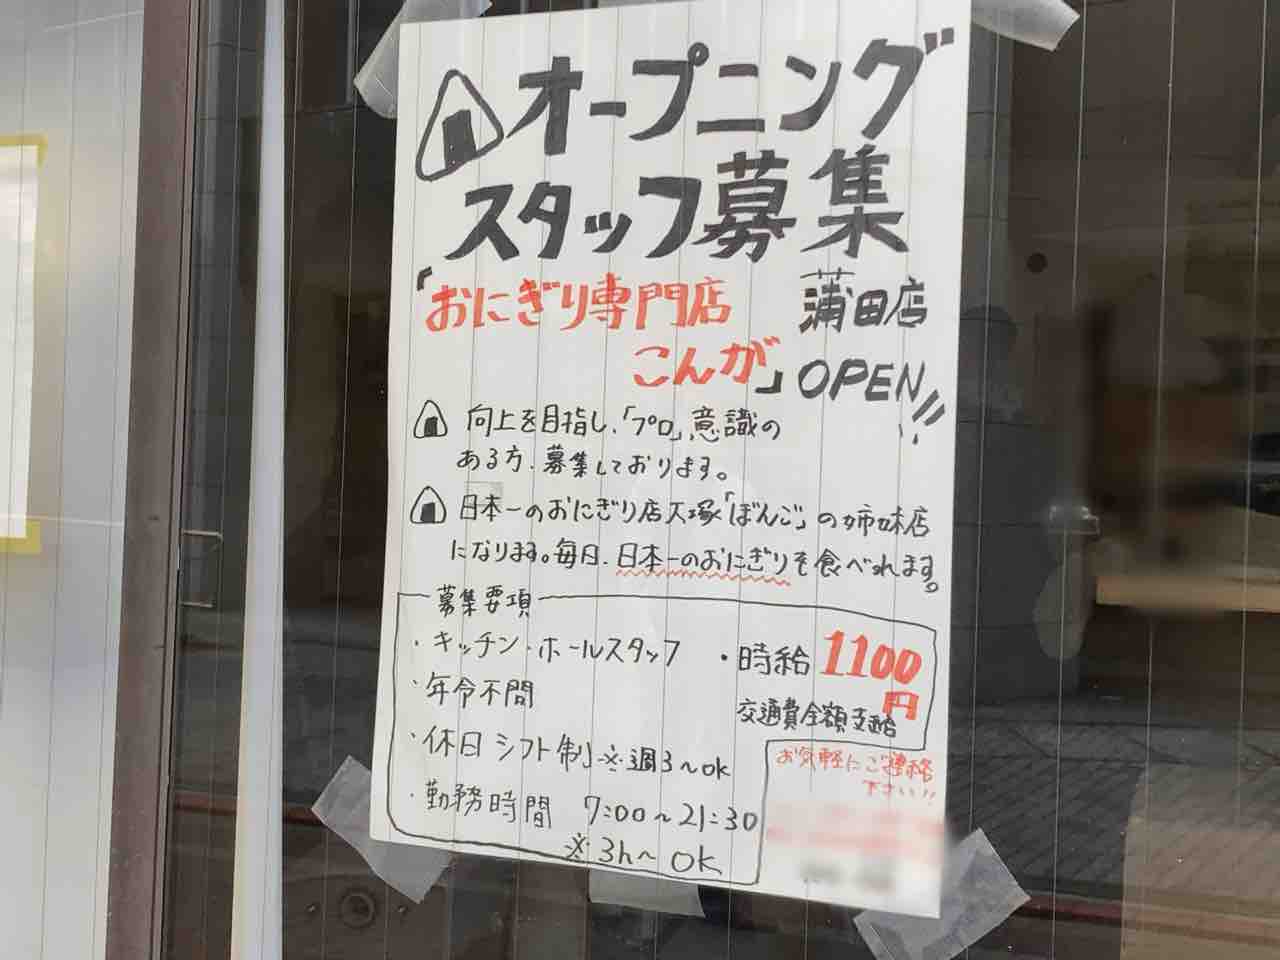 オープニング
スタッフ募集
「おにぎり専門店
こんが」
蒲田店
OPEN!!
向上を目指し、「プロ」意識の
ある方、募集しております。
日本一のおにぎり店大塚「ぼんご」の姉妹店
になります。毎日、日本一のおにぎりを食べれます。
募集要項
・キッチン・ホールスタッフ
・年令不問
・休日 シフト制 ※週3〜OK
・勤務時間 7:00〜21:30
※3h〜OK
・時給 1100円
交通費全額支給
お気軽にご連絡
下さい!!